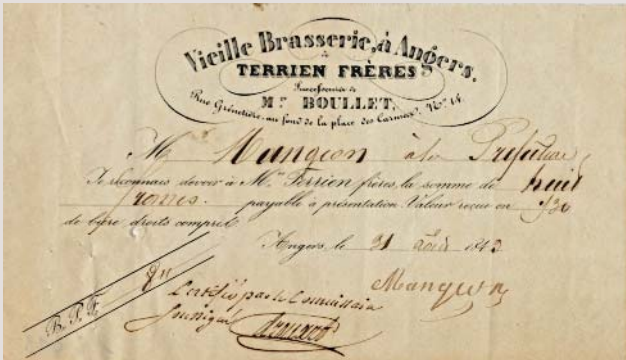 Vieille Brasserie, à Angers,
de
TERRIEN FRÈRES
Successeurs de
Mr. BOULLET,
Rue Grénetière, au fond de la place des Carmes, No. 14.
Mr Mangeon à la Préfecture
Je reconnais devoir à Mrs. Terrien frères, la somme de huit
francs payable à présentation Valeur reçue en
de bière droits compris
Angers, le 31 août 184
Mangeon
Certifié par le Commissaire
soussigné
B. P. F.